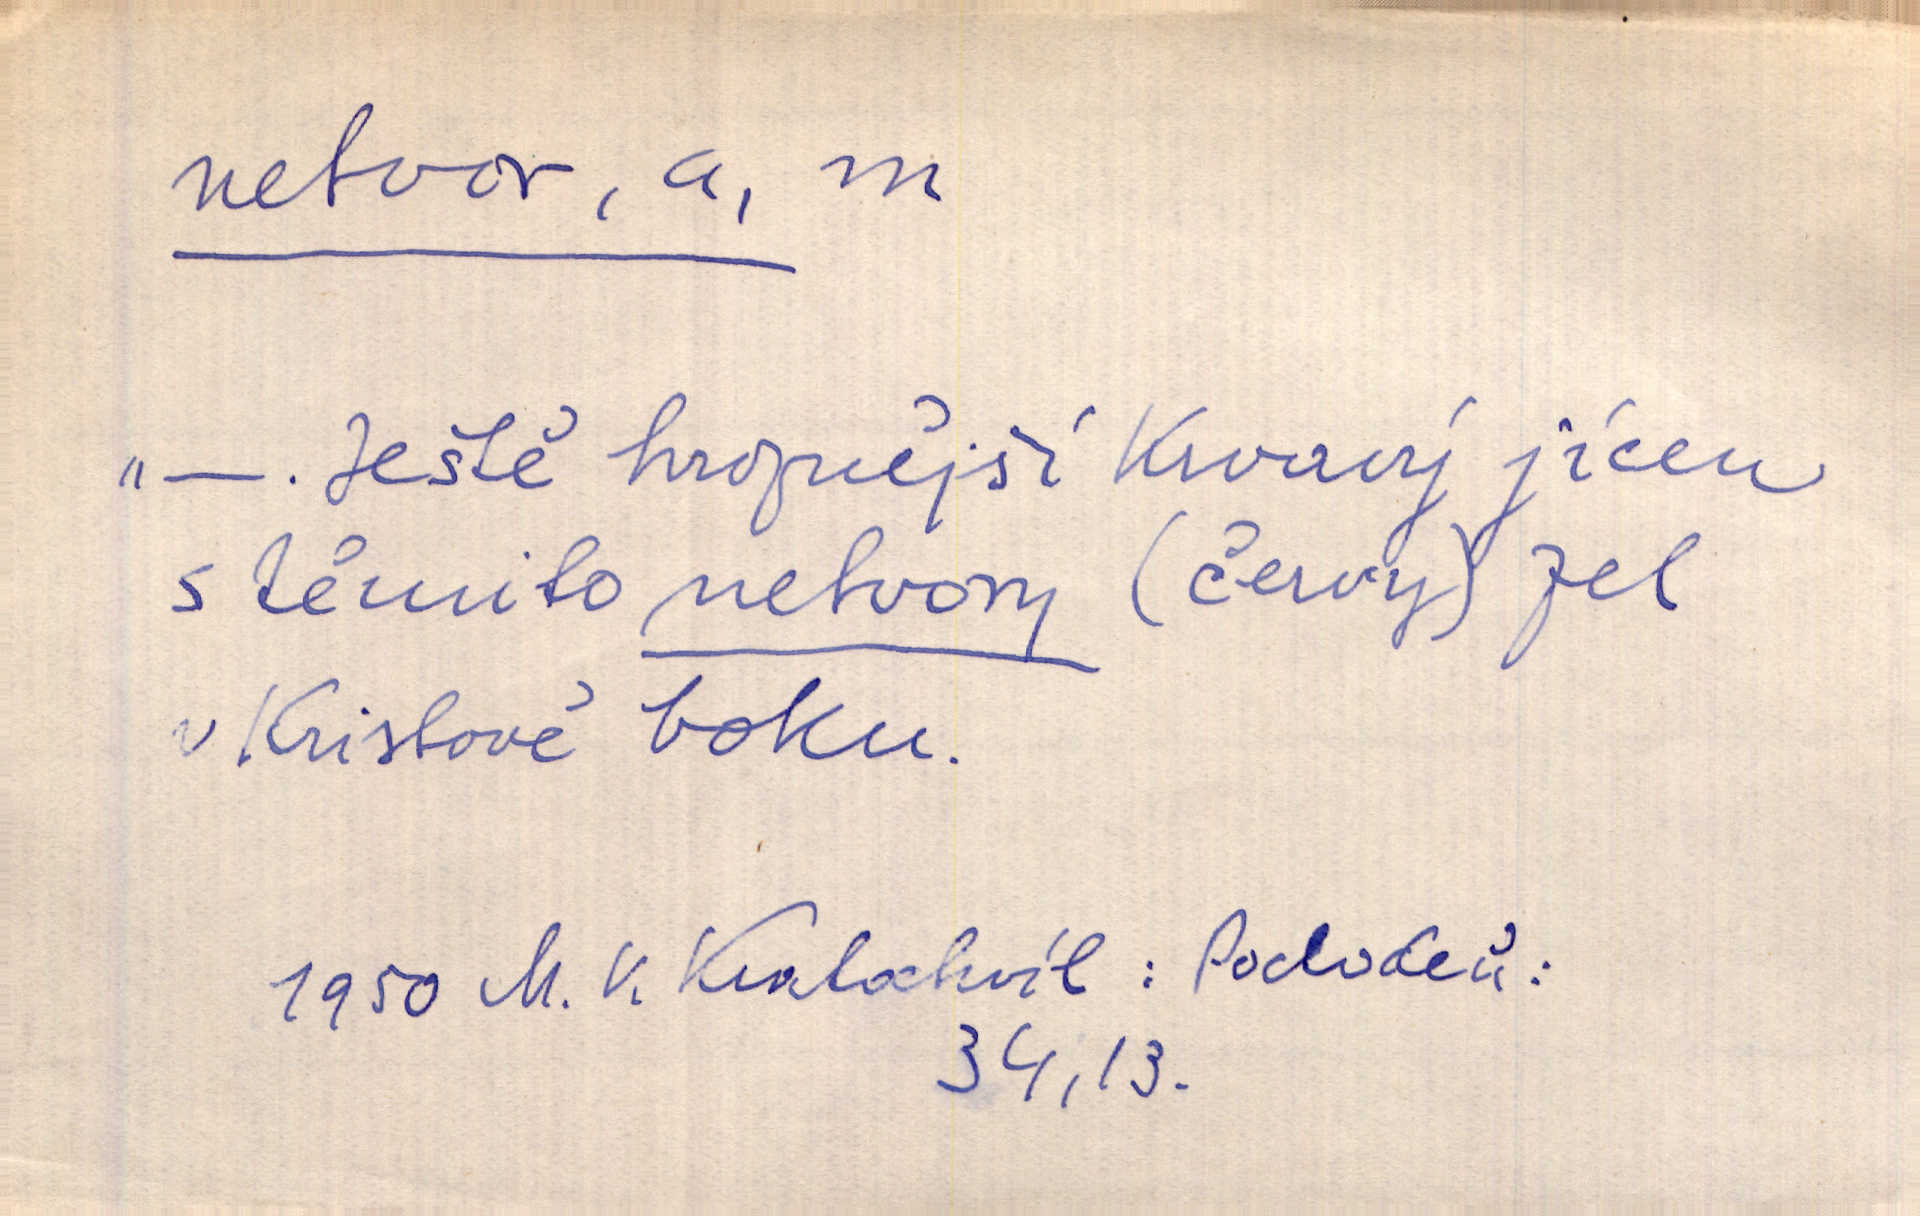 netvor, a, m
„ — . Ještě hroznější krvavý jícen
s těmito netvory (červy) zel
v Kristově boku.
1950 M. V. Kratochvíl : Podvodeň :
34, 13.